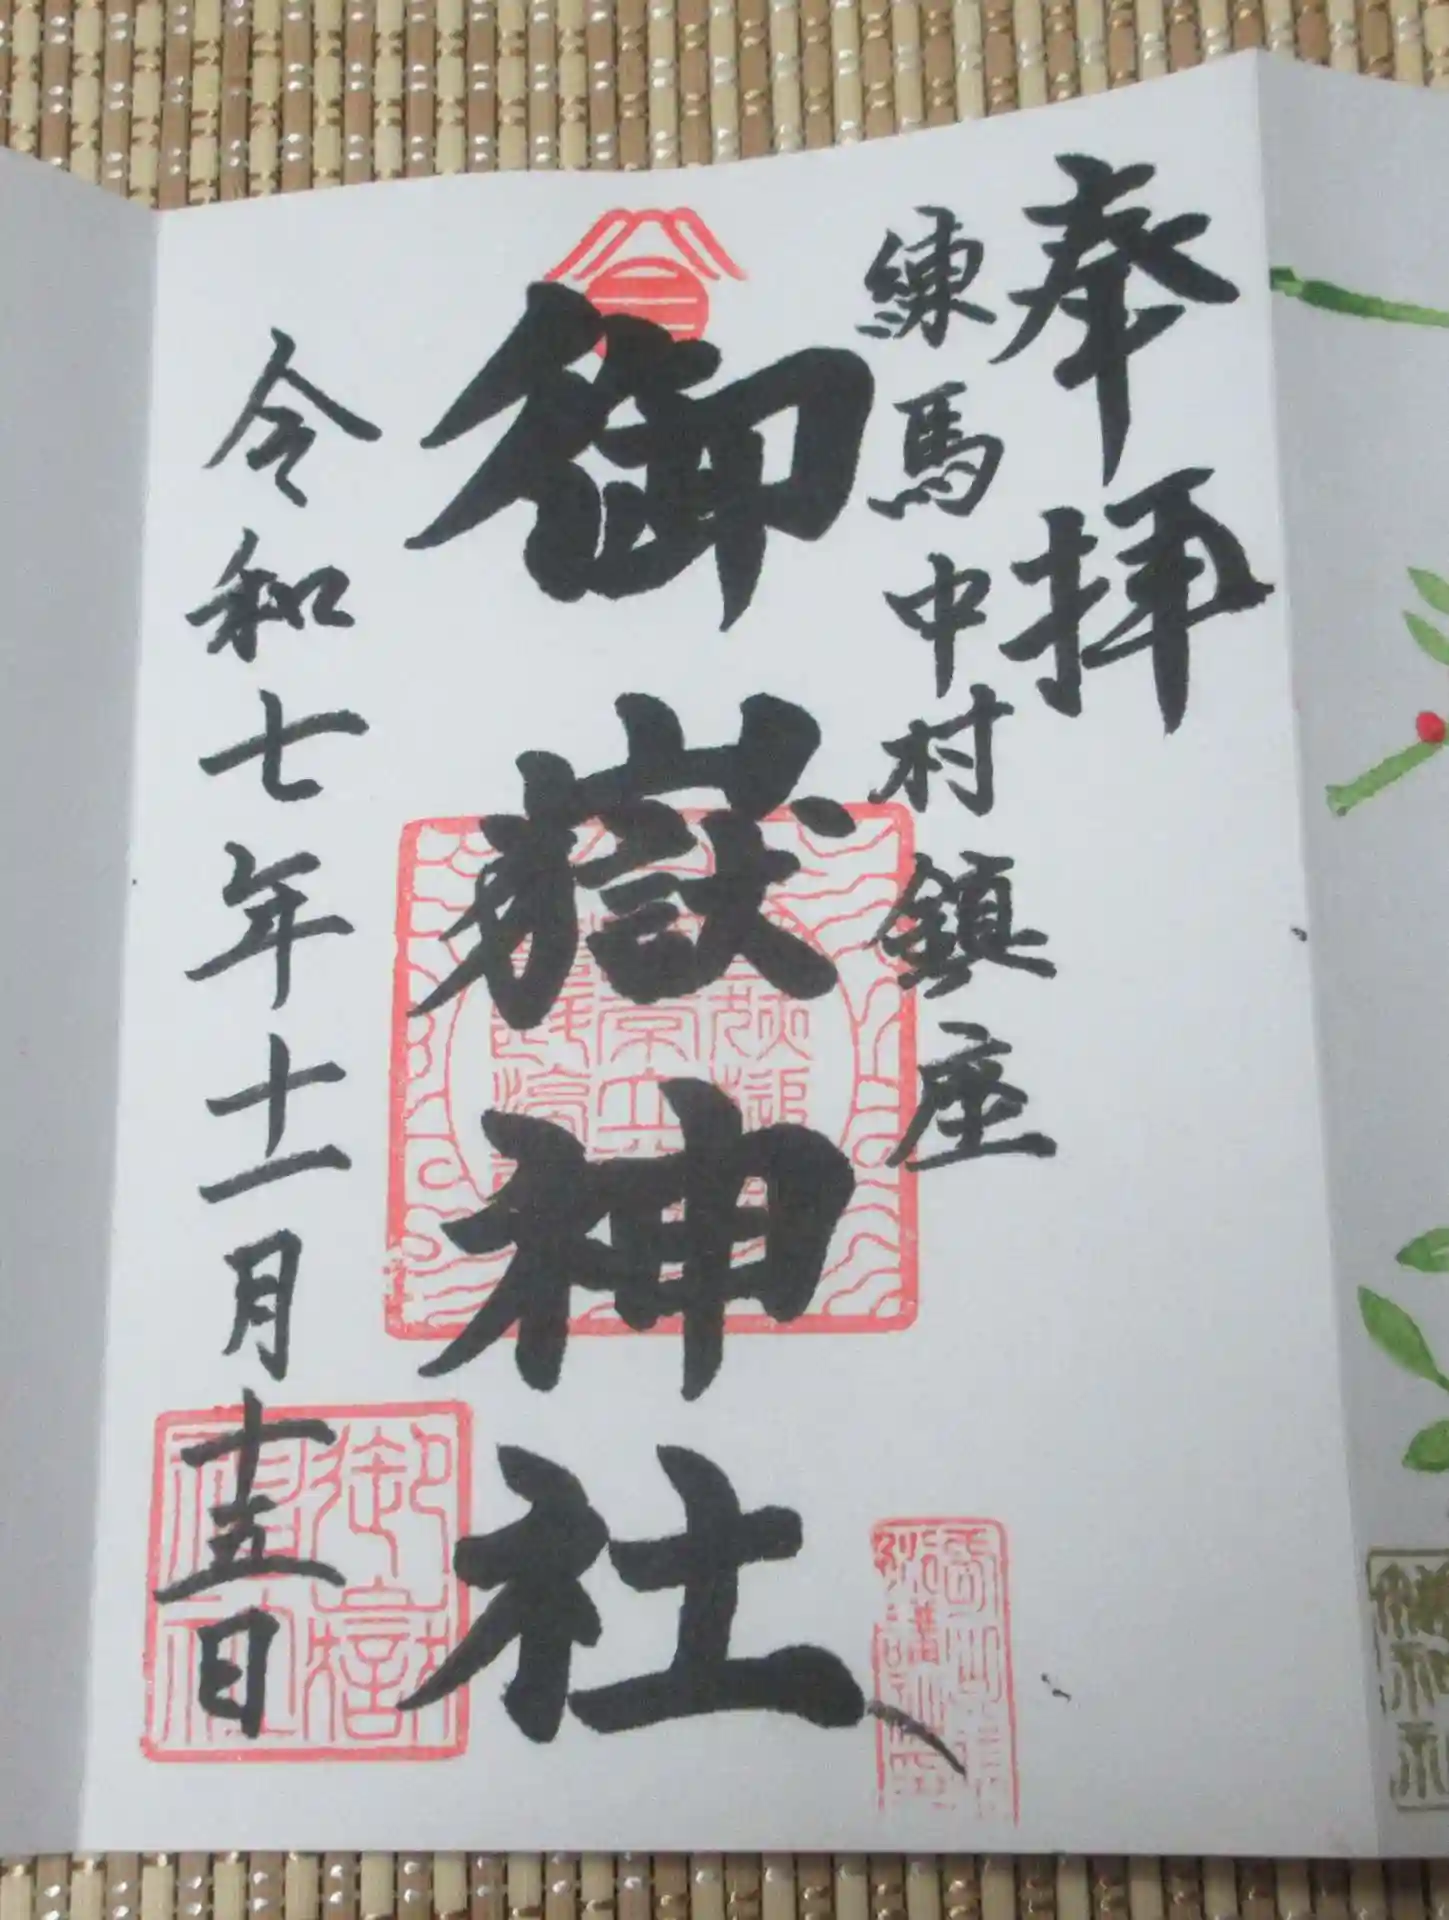 奉拝
練馬中村鎮座
御嶽神社
令和七年十一月十五日
御嶽
神社